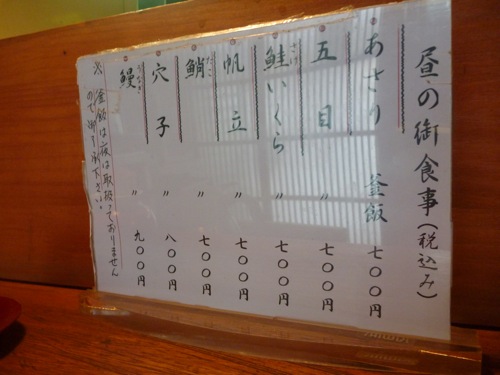 昼の御食事(税込み)
あさり釜飯 七〇〇円
五目 〃 七〇〇円
鮭いくら 〃 七〇〇円
帆立 〃 七〇〇円
鮹 〃 七〇〇円
穴子 〃 八〇〇円
鰻 〃 九〇〇円
※釜飯は夜は取扱っておりません
ので御了承下さい。